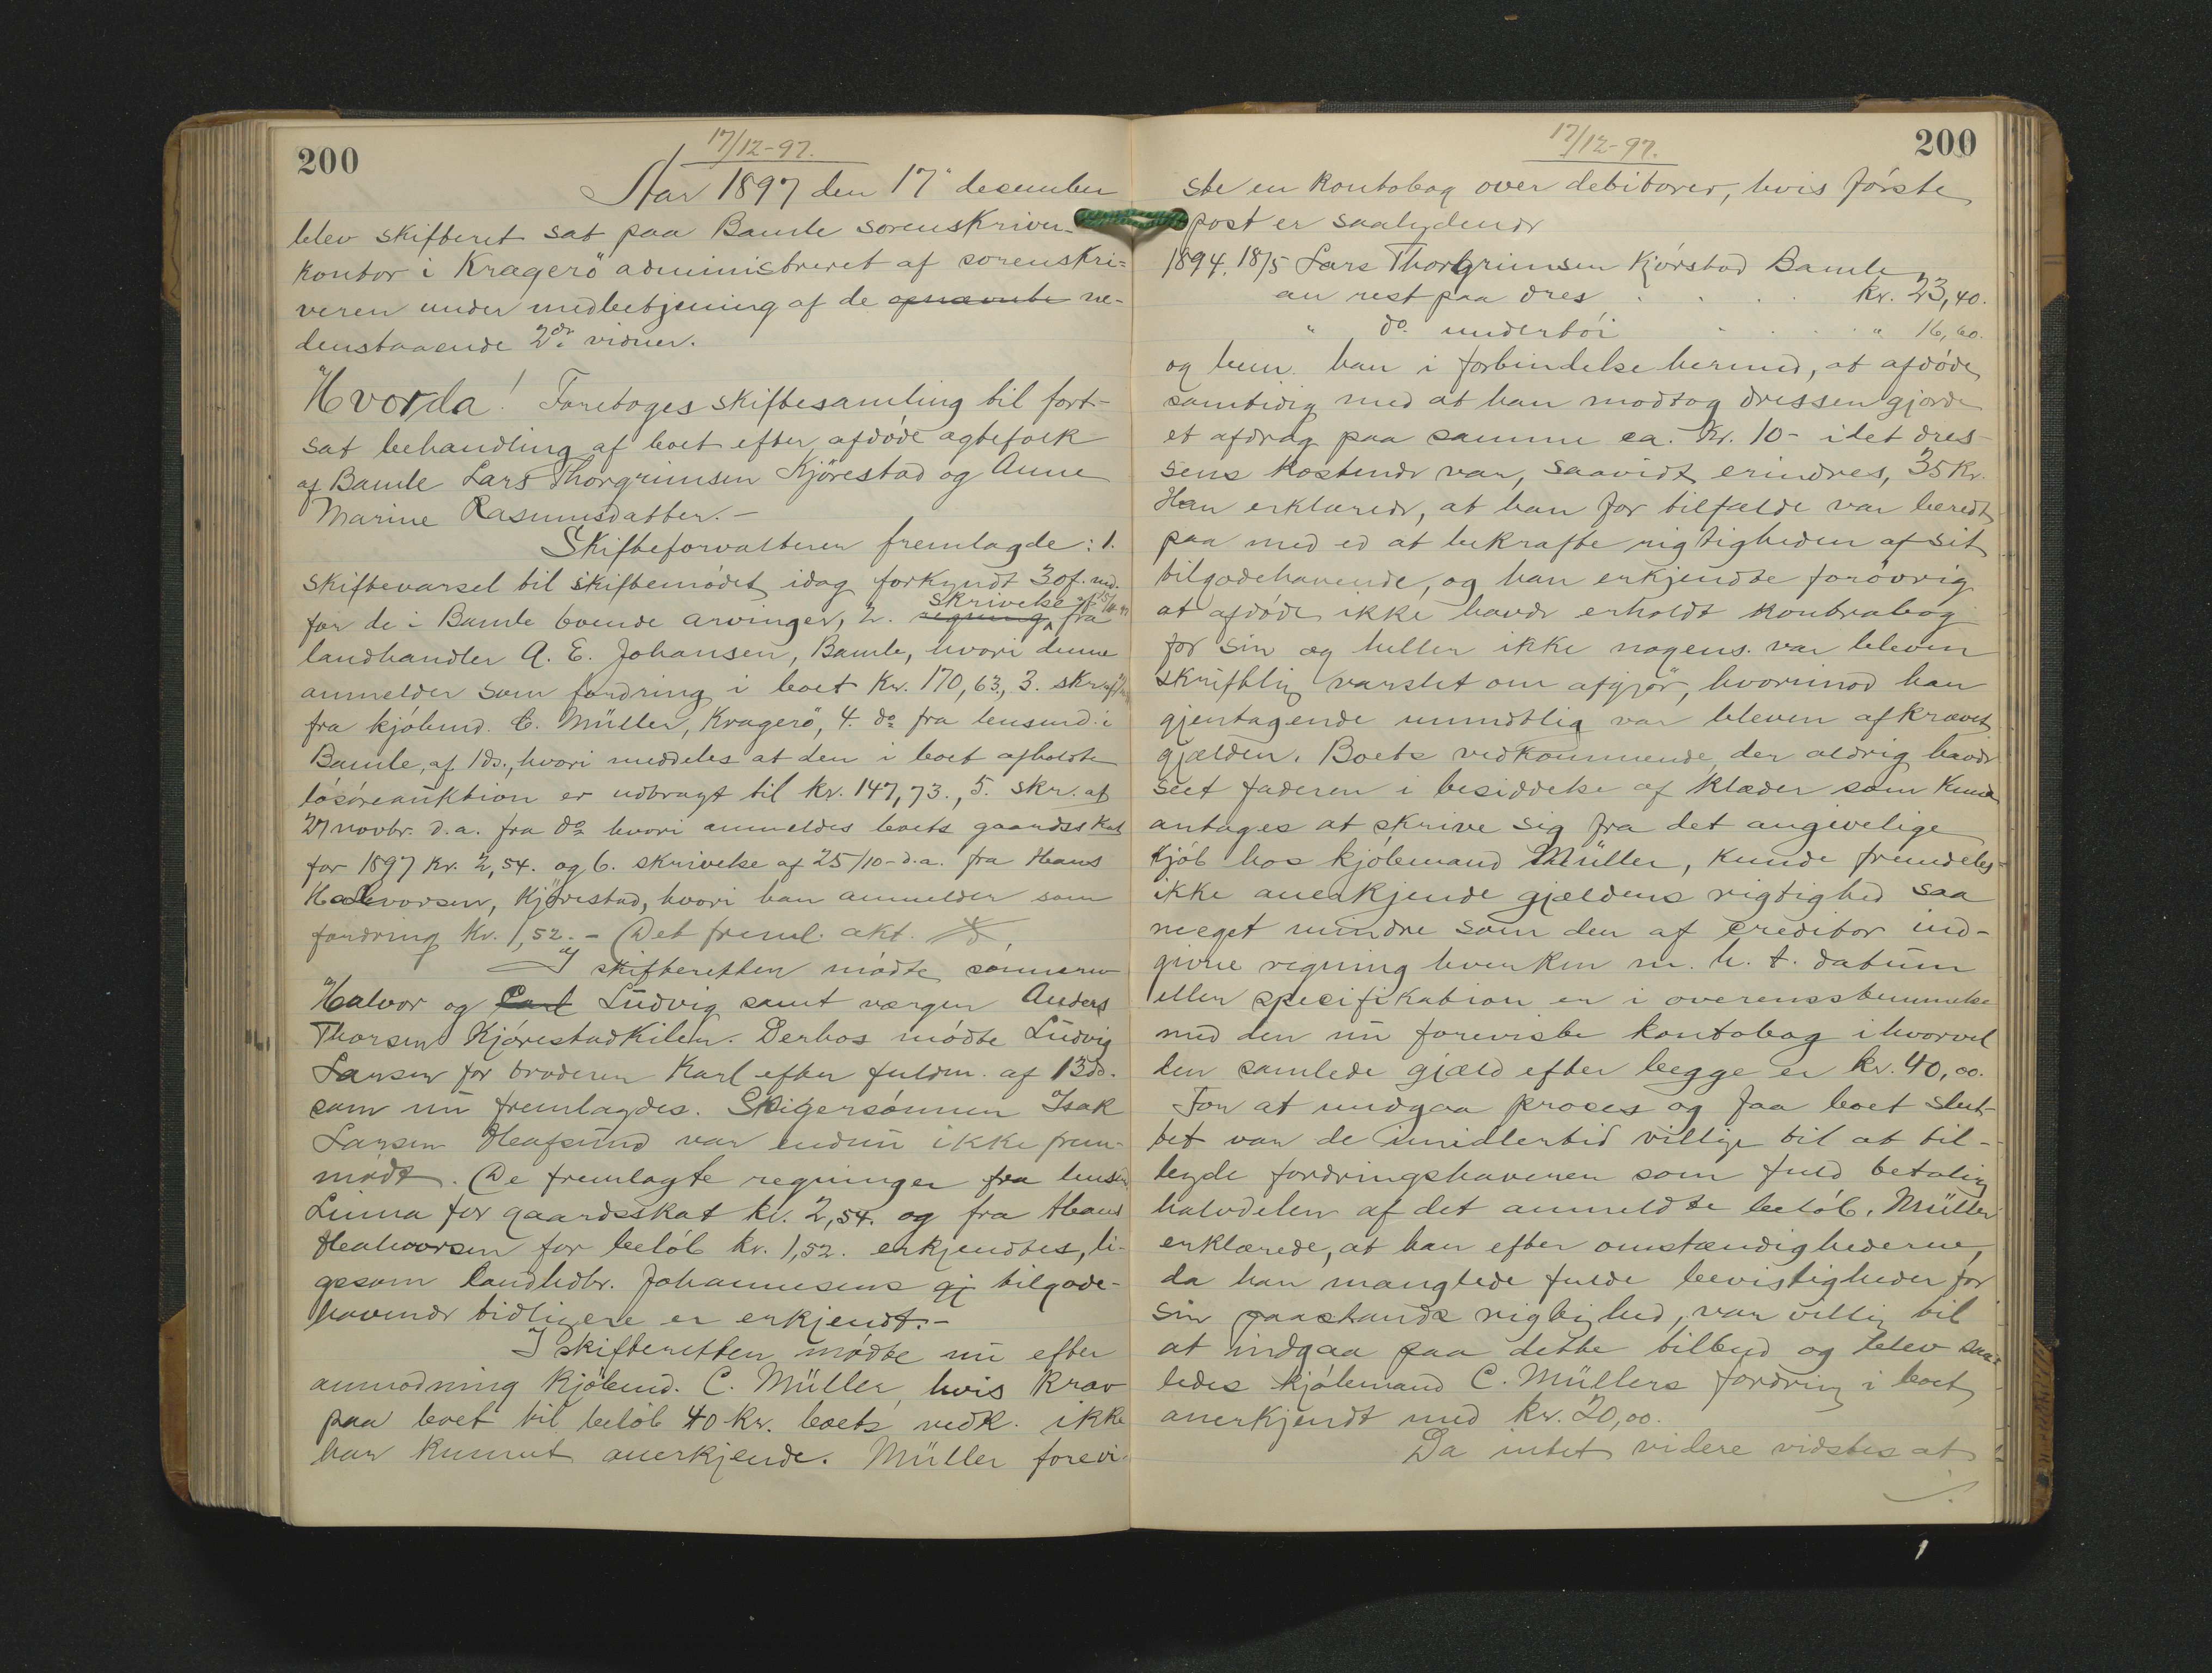 200
17/12-97.
Aar 1897 den 17' december
blev skifteret sat paa Bamle sorenskriver-
kontor i Kragerö administreret af sorenskri-
veren under medbetjening af de opnævnte ne-
denstaaende 2de vidner.
Hvorda! Foretoges skiftesamling til fort-
sat behandling af boet efter afdøde ægtefolk
af Bamle Lars Thorgrimsen Kjørestad og Anne
Marine Rasmusdatter.-
Skifteforvalteren fremlagde: 1.
skiftevarsel til skiftemødet idag forkyndt 30 f. md.
for de i Bamle boende arvinger, 2. regning skrivelse af 15/11 97 fra
landhandler A. E. Johansen, Bamle, hvori denne
anmelder som fordring i boet Kr. 170,63., 3. skr. af
fra kjøbmd. C. Müller, Kragerö, 4. do fra lensmd. i
Bamle, af 1 ds., hvori meddeles at den i boet afholdte
løsøreauktion er udbragt til kr. 147,73., 5. skr. af
27 novbr. d.a. fra do hvori anmeldes boets gaardsskat
for 1897 kr. 2,54. og 6. skrivelse af 25/10-d.a. fra Hans
Halvorsen, Kjørestad, hvori han anmelder som
fordring kr. 1,52. - Det freml. akt.
I skifteretten mødte sønnerne
Halvor og Carl Ludvig samt værgen Anders
Thorsen Kjørestadkilen. Derhos mødte Ludvig
Larsen for broderen Karl efter fuldm. af 13 ds.
som nu fremlagdes. Svigersønnen Isak
Larsen Hafsund var endnu ikke frem-
mødt. De fremlagte regninger fra lensmd.
Linna for gaardsskat kr. 2,54. og fra Hans
Halvorsen for beløb kr. 1,52. erkjendtes, li-
gesom landhdlr. Johannesens gj tilgode-
havende tidligere er erkjendt.-
I skifteretten mødte nu efter
anmodning kjøbmd. C. Müller, hvis krav
paa boet til beløb 40 kr. boets vedk. ikke
har kunnet anerkjende. Müller forevi-
17/12-97.
200
ste en kontobog over debitorer, hvis første
post er saalydende
1894. 18/5 Lars Thorgrimsen Kjørstad Bamle
an rest paa dres . . . . kr. 23,40.
" do. undertøi . . . . " 16,60.
og han i forbindelse hermed, at afdøde
samtidig med at han modtog dressen gjorde
et afdrag paa samme ca. Kr. 10- idet dres-
sens kostende var, saavidt erindres, 35 kr.
Han erklærede, at han for tilfælde var beredt
paa med ed at bekræfte rigtigheden af sit
tilgodehavende, og han erkjendte forøvrig
at afdøde ikke havde erholdt kontrabog
for sin og heller ikke nogens. var bleven
skriftlig varslet om afgjør, hvorimod han
gjentagende mundtlig var bleven afkrævet
gjælden. Boets vedkommende, der aldrig havde
seet faderen i besiddelse af klæder som kunde
antages at skrive sig fra det angivelige
kjøb hos kjøbmand Müller, kunde fremdeles
ikke anerkjende gjældens rigtighed saa
meget mindre som den af creditor ind-
givne regning hverken m. h. t. datum
eller specifikation er i overensstemmelse
med den nu foreviste kontobog ihvorvel
den samlede gjæld efter begge er kr. 40,00.
For at undgaa proces og faa boet slut-
tet var de imidlertid villige til at til-
byde fordringshaveren som fuld betaling
halvdelen af det anmeldte beløb. Müller
erklærede, at han efter omstændighederne,
da han manglede fulde bevisligheder for
sin paastands rigtighed, var villig til
at indgaa paa dette tilbud og blev saa-
ledes kjøbmand C. Müllers fordring i boet
anerkjendt med kr. 20,00.
Da intet videre vidstes at